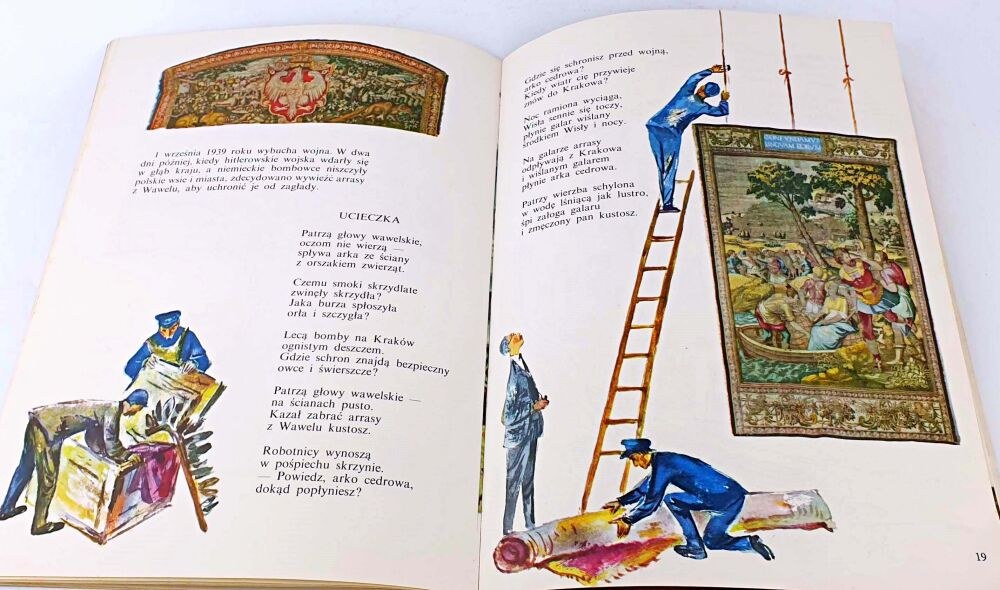 1 września 1939 roku wybucha wojna. W dwa
dni później, kiedy hitlerowskie wojska wdarły się
w głąb kraju, a niemieckie bombowce niszczyły
polskie wsie i miasta, zdecydowano wywieźć arrasy
z Wawelu, aby uchronić je od zagłady.
UCIECZKA
Patrzą głowy wawelskie,
oczom nie wierzą —
spływa arka ze ściany
z orszakiem zwierząt.
Czemu smoki skrzydlate
zwinęły skrzydła?
Jaka burza spłoszyła
orła i szczygła?
Lecą bomby na Kraków
ognistym deszczem.
Gdzie schron znajdą bezpieczny
owce i świerszcze?
Patrzą głowy wawelskie —
na ścianach pusto.
Kazał zabrać arrasy
z Wawelu kustosz.
Robotnicy wynoszą
w pośpiechu skrzynie.
— Powiedz, arko cedrowa,
dokąd popłyniesz?
Gdzie się schronisz przed wojną,
arko cedrowa?
Kiedy wiatr cię przywieje
znów do Krakowa?
Noc ramiona wyciąga,
Wisła sennie się toczy,
płynie galar wiślany
środkiem Wisły i nocy.
Na galarze arrasy
odpływają z Krakowa
i wiślanym galarem
płynie arka cedrowa.
Patrzy wierzba schylona
w wodę lśniącą jak lustro,
śpi załoga galaru
i zmęczony pan kustosz.
LINGVAM EORVM
19